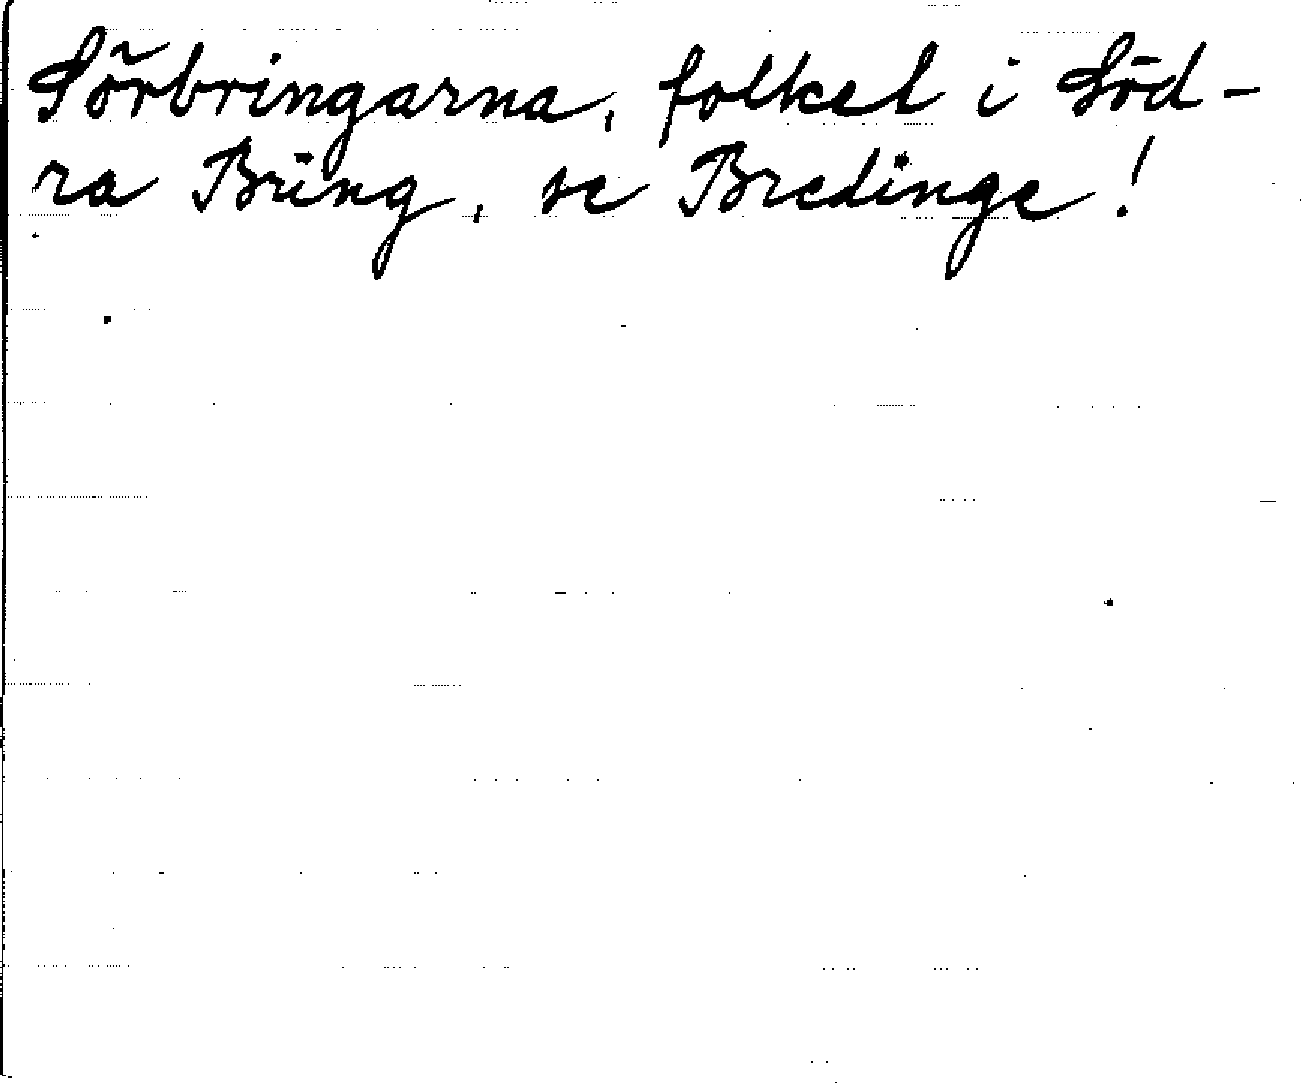 Sörbringarna, folket i Söd-
ra Bring, se Bredinge!